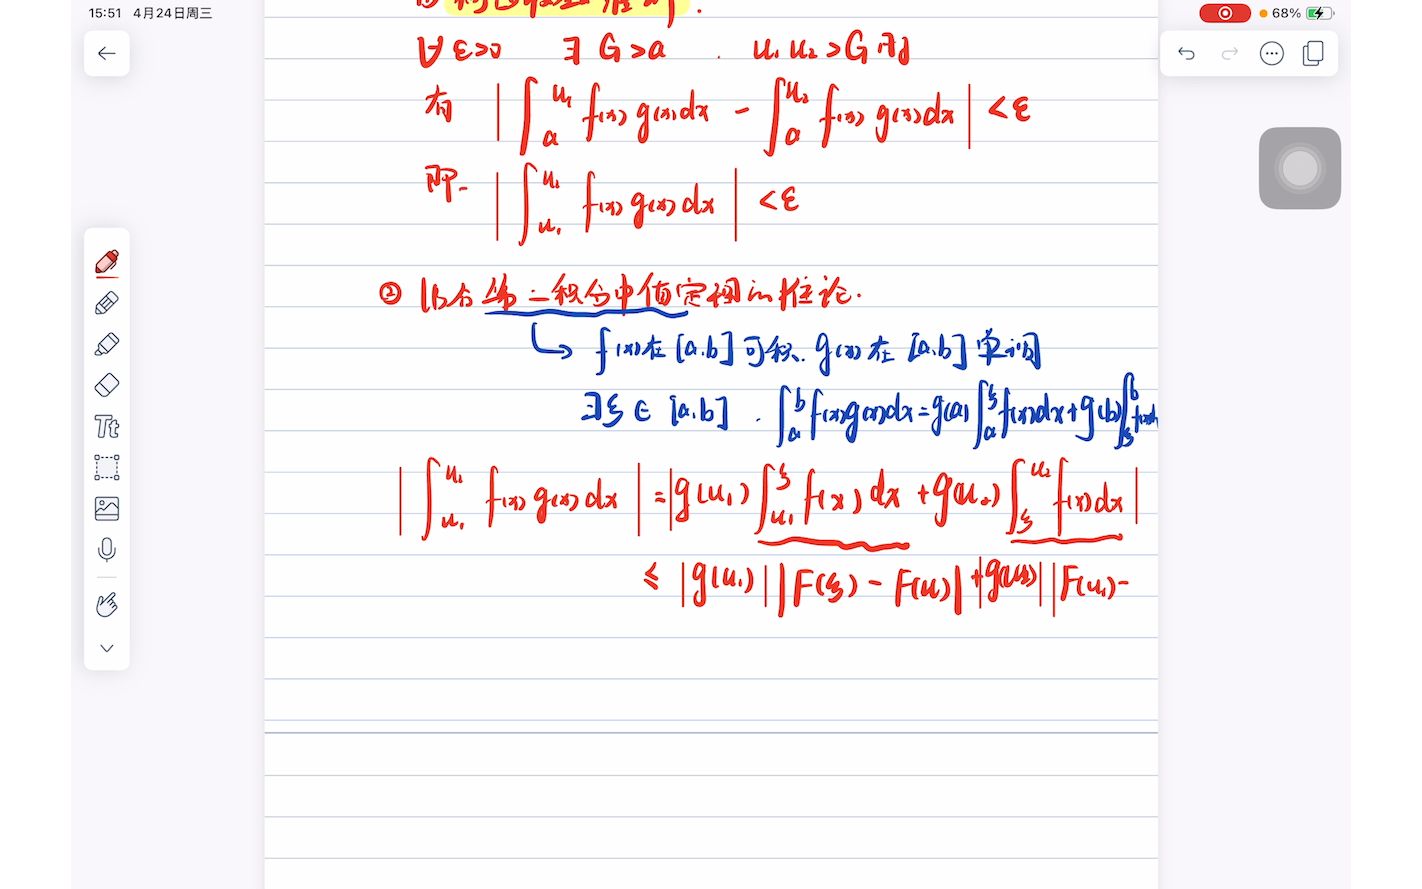 15:51 4月24日周三
68%
① 柯西收敛准则.
∀ε>0 ∃ G>a . u₁ u₂>G 时
有 |∫ₐ^{u₁} f(x) g(x)dx - ∫ₐ^{u₂} f(x) g(x)dx| <ε
即 |∫_{u₁}^{u₂} f(x) g(x) dx| <ε
② 结合第二积分中值定理的推论.
↳ f(x)在[a.b]可积. g(x)在[a.b]单调
∃ξ∈[a.b] . ∫ₐ^b f(x)g(x)dx=g(a)∫ₐ^ξ f(x)dx+g(b)∫_ξ^b f(x)dx
|∫_{u₁}^{u₂} f(x) g(x) dx| =|g(u₁)∫_{u₁}^ξ f(x)dx+g(u₂)∫_ξ^{u₂} f(x)dx|
≤ |g(u₁)||F(ξ)-F(u₁)|+|g(u₂)||F(u₂)-
Tt